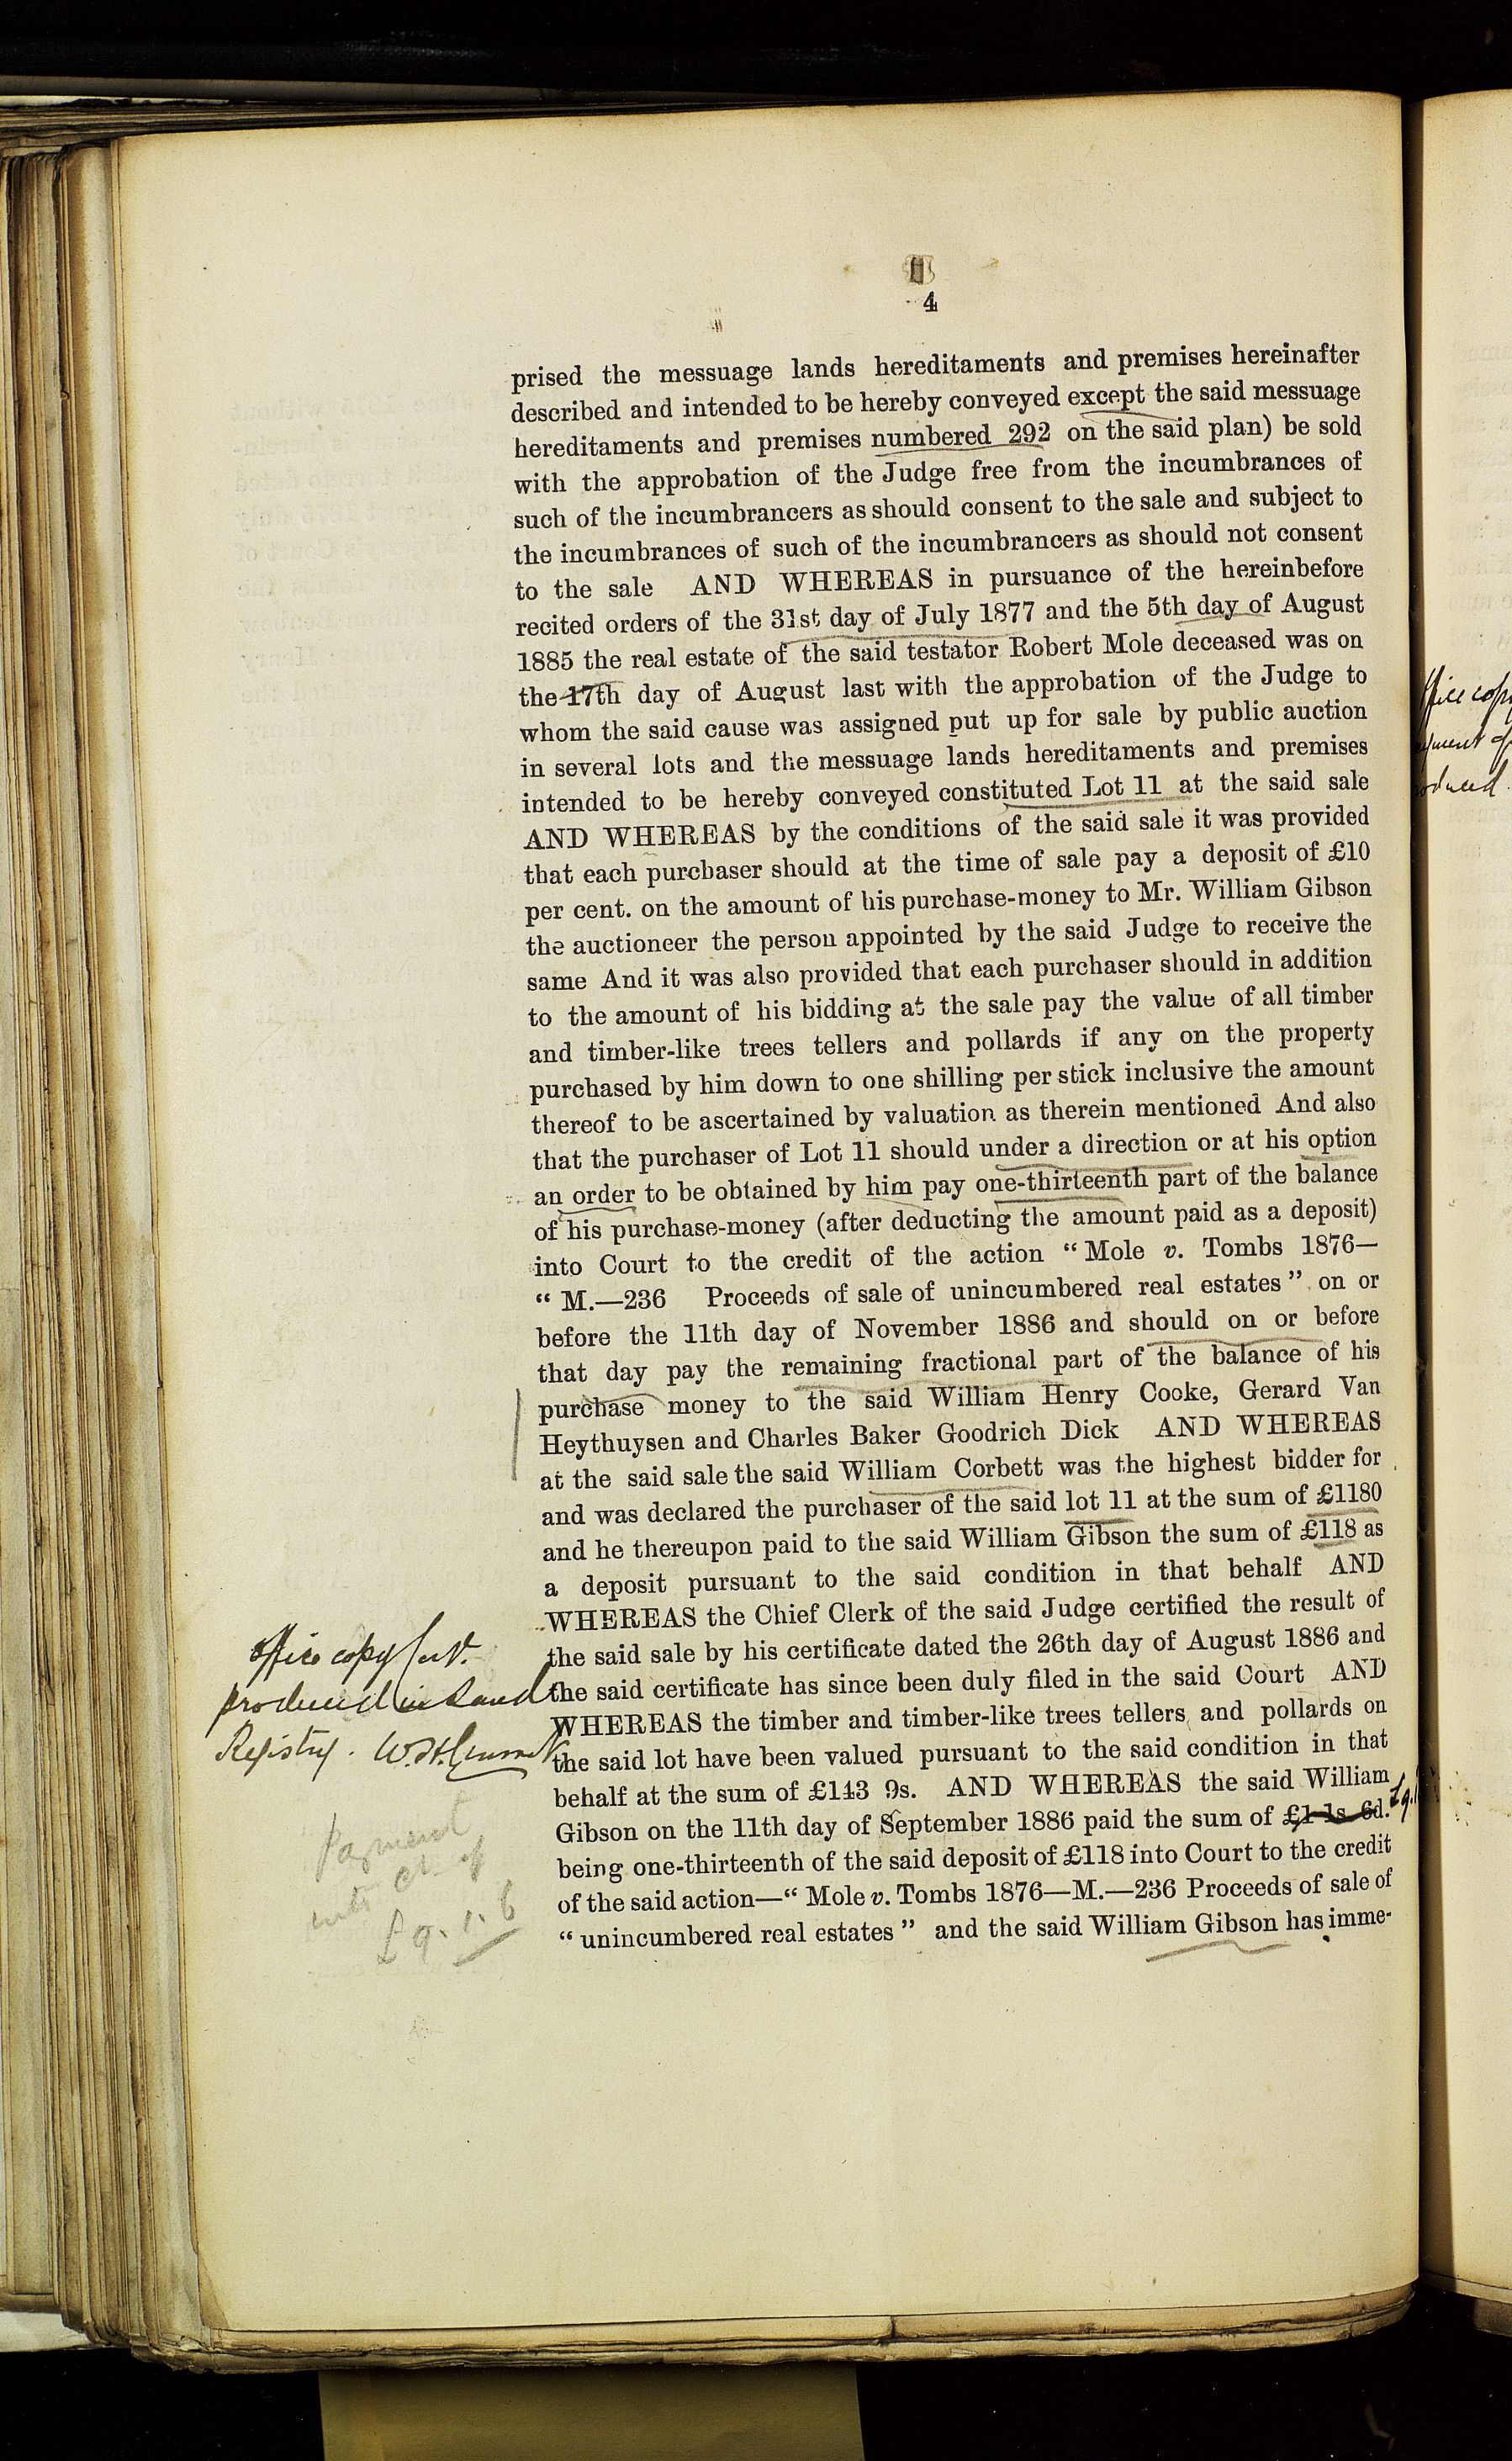 4
prised the messuage lands hereditaments and premises hereinafter
described and intended to be hereby conveyed except the said messuage
hereditaments and premises numbered 292 on the said plan) be sold
with the approbation of the Judge free from the incumbrances of
such of the incumbrancers as should consent to the sale and subject to
the incumbrances of such of the incumbrancers as should not consent
to the sale AND WHEREAS in pursuance of the hereinbefore
recited orders of the 31st day of July 1877 and the 5th day of August
1885 the real estate of the said testator Robert Mole deceased was on
the 17th day of August last with the approbation of the Judge to
whom the said cause was assigned put up for sale by public auction
in several lots and the messuage lands hereditaments and premises
intended to be hereby conveyed constituted Lot 11 at the said sale
AND WHEREAS by the conditions of the said sale it was provided
that each purchaser should at the time of sale pay a deposit of £10
per cent. on the amount of his purchase-money to Mr. William Gibson
the auctioneer the person appointed by the said Judge to receive the
same And it was also provided that each purchaser should in addition
to the amount of his bidding at the sale pay the value of all timber
and timber-like trees tellers and pollards if any on the property
purchased by him down to one shilling per stick inclusive the amount
thereof to be ascertained by valuation as therein mentioned And also
that the purchaser of Lot 11 should under a direction or at his option
an order to be obtained by him pay one-thirteenth part of the balance
of his purchase-money (after deducting the amount paid as a deposit)
into Court to the credit of the action “ Mole v. Tombs 1876—
“ M.—236 Proceeds of sale of unincumbered real estates ” on or
before the 11th day of November 1886 and should on or before
that day pay the remaining fractional part of the balance of his
purchase money to the said William Henry Cooke, Gerard Van
Heythuysen and Charles Baker Goodrich Dick AND WHEREAS
at the said sale the said William Corbett was the highest bidder for
and was declared the purchaser of the said lot 11 at the sum of £1180
and he thereupon paid to the said William Gibson the sum of £118 as
a deposit pursuant to the said condition in that behalf AND
WHEREAS the Chief Clerk of the said Judge certified the result of
the said sale by his certificate dated the 26th day of August 1886 and
the said certificate has since been duly filed in the said Court AND
WHEREAS the timber and timber-like trees tellers and pollards on
the said lot have been valued pursuant to the said condition in that
behalf at the sum of £143 9s. AND WHEREAS the said William
Gibson on the 11th day of September 1886 paid the sum of £1 1s 6d.
being one-thirteenth of the said deposit of £118 into Court to the credit
of the said action—“ Mole v. Tombs 1876—M.—236 Proceeds of sale of
“ unincumbered real estates ” and the said William Gibson has imme-
Office copy Cert.
produced in Land
Registry. W.H.
Payment
into Ct. of
£9. 1. 6